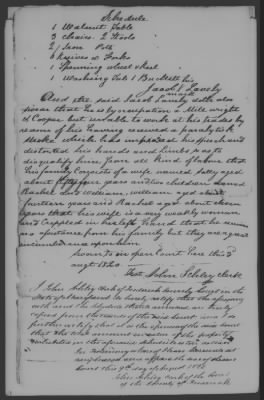 Schedule
1 Walnut Table
3 chairs 2 Stools
2 Iron Pots
6 knives & Forks
1 Spinning wheel & reel
1 Washing Tub 1 Bucket his
Jacob Lavely
mark
And the said Jacob Lavely doth also
swear that he is by occupation a Mill wright
& Cooper but unable to work at his trades by
reason of his having received a paralytick
stroke which has impaired his speech and
distorted his hands and limbs so as to
disqualify him from all kind of labour that
his family consists of a wife named
about years and two children named
Rachel and William, william aged about
fourteen years and Rachel aged about eleven
years that his wife is a very weakly woman
and crippled in her left hand that he receives
no assistance from his family but they are a great
incumbrance upon him
Sworn to in open Court here this 9th
augt 1820
Test John Schley Clerk
I John Schley Clerk of Frederick County Court in the
State of Maryland do hereby certify that the foregoing
oath and the schedule thereto annexed are truly
copied from the record of the said court and I do
further certify that it is the opinion of the said court
that the total amount in value of the property
exhibited in the aforesaid schedule is
In testimony whereof I have hereunto set
my hand and affixed the seal of the said
court this 9th day of August 1820
John Schley Clerk of the Court
of the County of Frederick